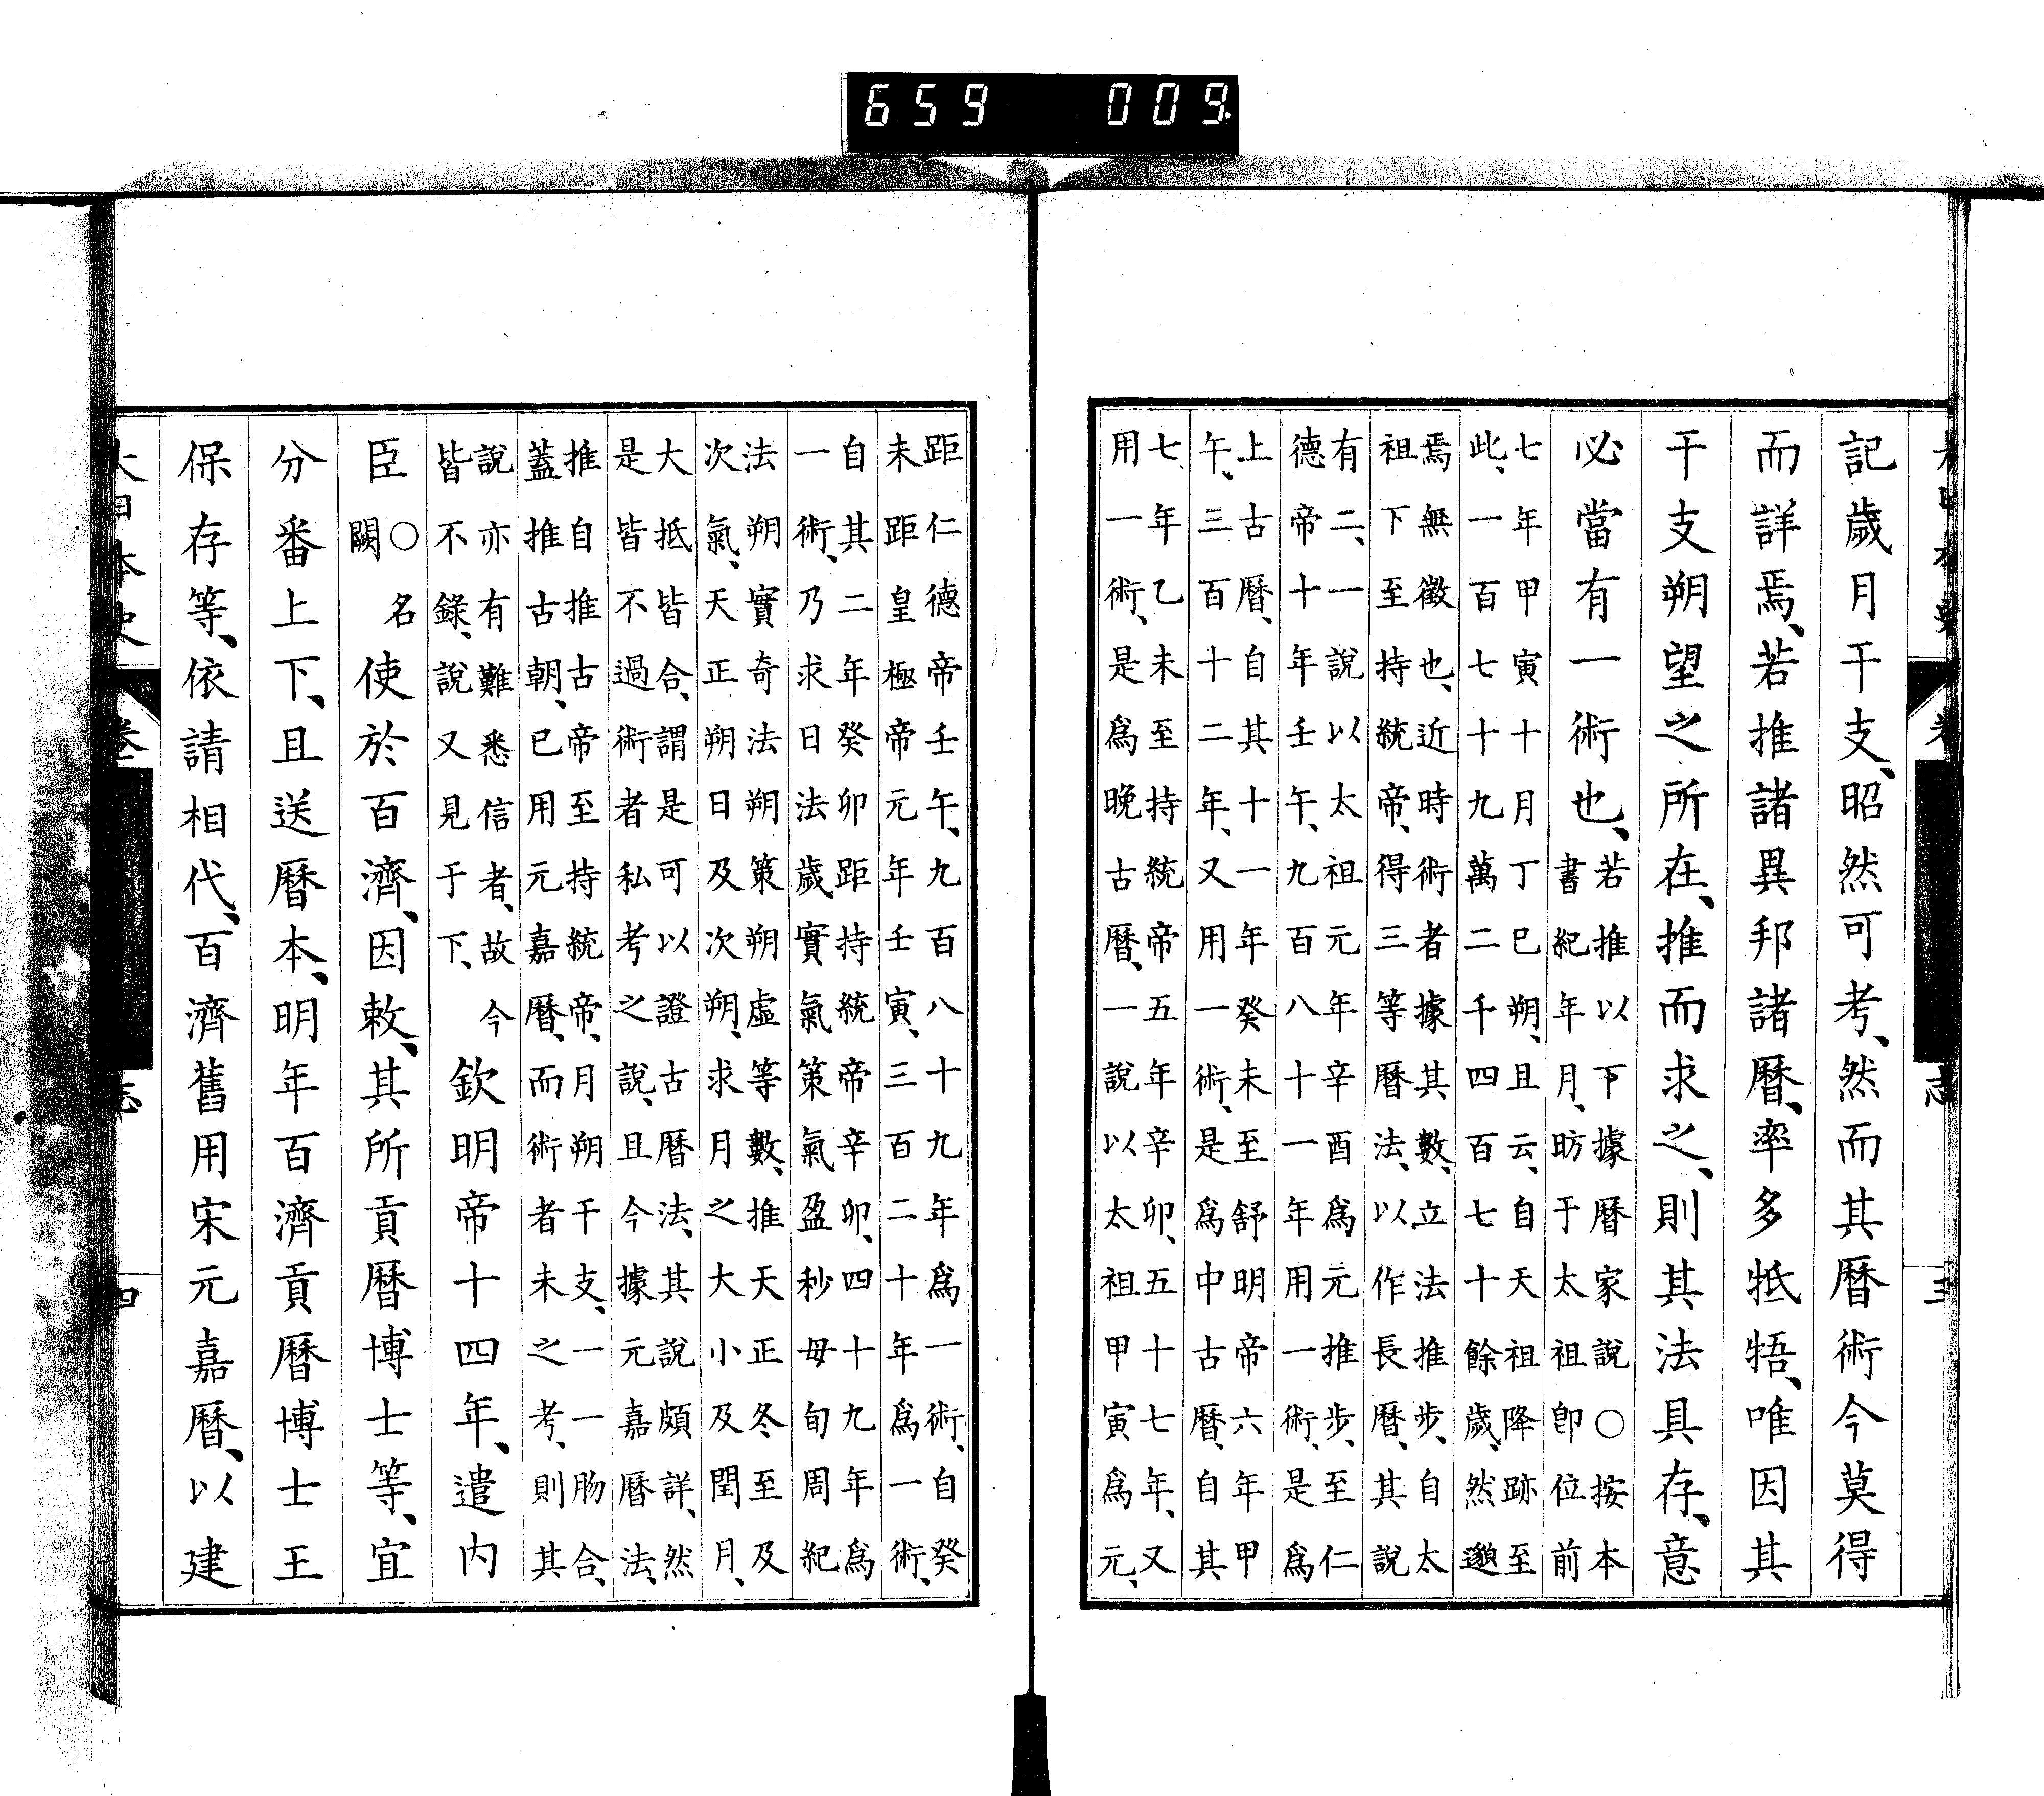 659 009.
記歲月干支、昭然可考、然而其曆術今莫得
而詳焉、若推諸異邦諸曆、率多牴牾、唯因其
干支朔望之所在、推而求之、則其法具存、意
必當有一術也、
若推以下據曆家說○按本
書紀年月、昉于太祖卽位前
七年甲寅十月丁巳朔、且云、自天祖降跡至
此、一百七十九萬二千四百七十餘歲、然邈
焉無徵也、近時術者據其數、立法推步、自太
祖下至持統帝、得三等曆法、以作長曆、其說
有二、一說以太祖元年辛酉爲元推步、至仁
德帝十年壬午、九百八十一年用一術、是爲
上古曆、自其十一年癸未至舒明帝六年甲
午、三百十二年、又用一術、是爲中古曆、自其
七年乙未至持統帝五年辛卯、五十七年、又
用一術、是爲晚古曆、一說以太祖甲寅爲元、
距仁德帝壬午、九百八十九年爲一術、自癸
未距皇極帝元年壬寅、三百二十年爲一術、
自其二年癸卯距持統帝辛卯、四十九年爲
一術、乃求日法歲實氣策氣盈秒母旬周紀
法朔實奇法朔策朔虛等數、推天正冬至及
次氣、天正朔日及次朔、求月之大小及閏月、
大抵皆合、謂是可以證古曆法、其說頗詳、然
是皆不過術者私考之說、且今據元嘉曆法、
推自推古帝至持統帝、月朔干支、一一脗合、
蓋推古朝、已用元嘉曆、而術者未之考、則其
說亦有難悉信者、故今
皆不錄、說又見于下、
欽明帝十四年、遣內
臣○名
闕
使於百濟、因敕、其所貢曆博士等、宜
分番上下、且送曆本、明年百濟貢曆博士王
保存等、依請相代、百濟舊用宋元嘉曆、以建
大日本史
卷
志
四